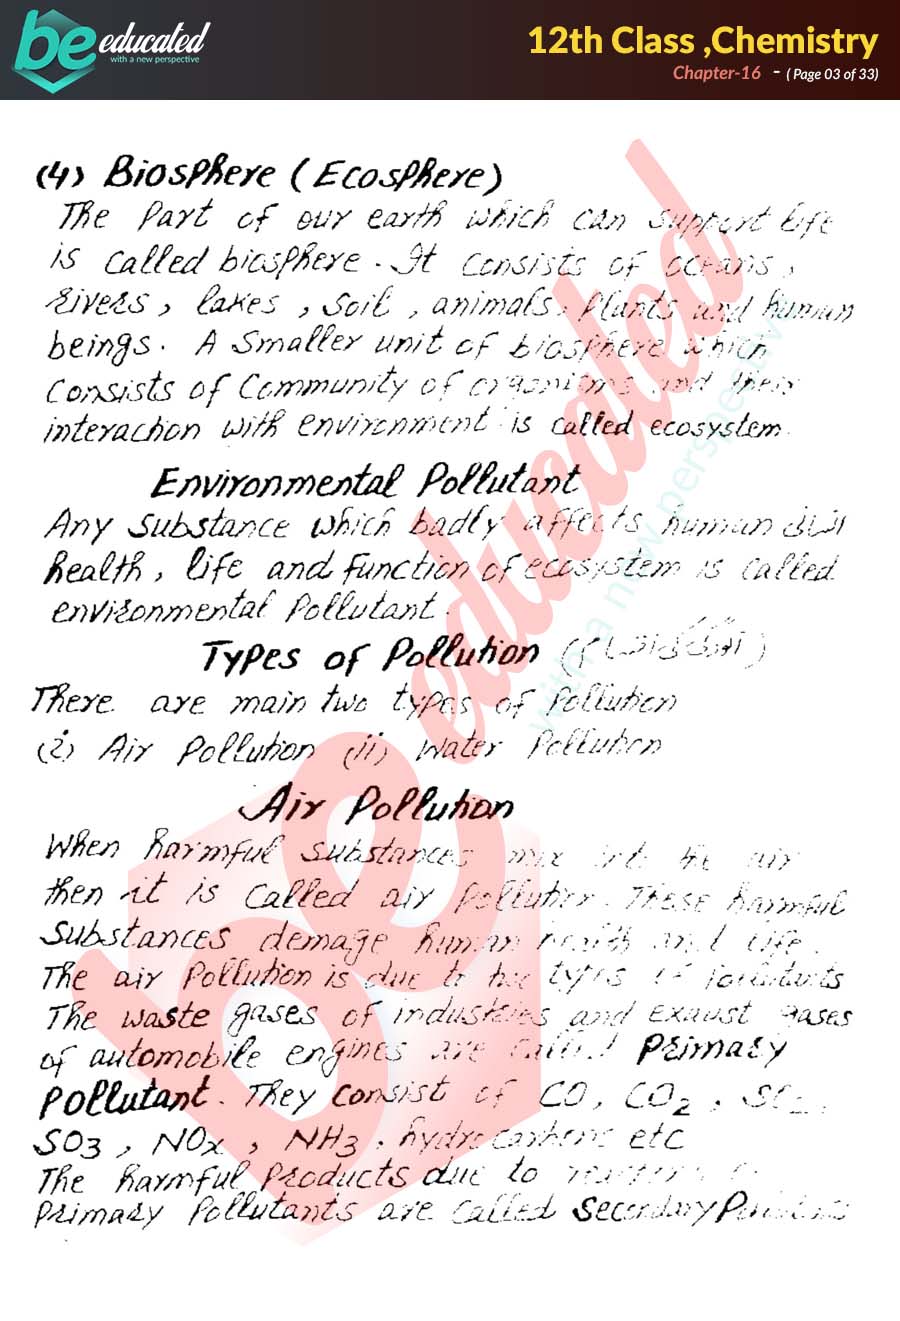 be educated
with a new perspective
12th Class ,Chemistry
Chapter-16 - ( Page 03 of 33)
(4) Biosphere ( Ecosphere)
The Part of our earth which can support life
is called biosphere. It consists of oceans,
rivers, lakes, soil, animals, Plants and human
beings. A Smaller unit of biosphere which
consists of Community of organisms and their
interaction with environment is called ecosystem.
Environmental Pollutant
Any substance which badly affects human
health, life and function of ecosystem is called
environmental Pollutant.
Types of Pollution
There are main two types of Pollution
(i) Air Pollution (ii) Water Pollution
Air Pollution
When harmful substances mix into the air
then it is called air Pollution. These harmful
substances demage human health and life.
The air Pollution is due to two types of Pollutants
The waste gases of industries and exaust gases
of automobile engines are called Primary
Pollutant. They consist of CO, CO2,
SO3, NOx, NH3, hydrocarbons etc
The harmful Products due to
Primary Pollutants are called Secondary
be educated
with a new perspective